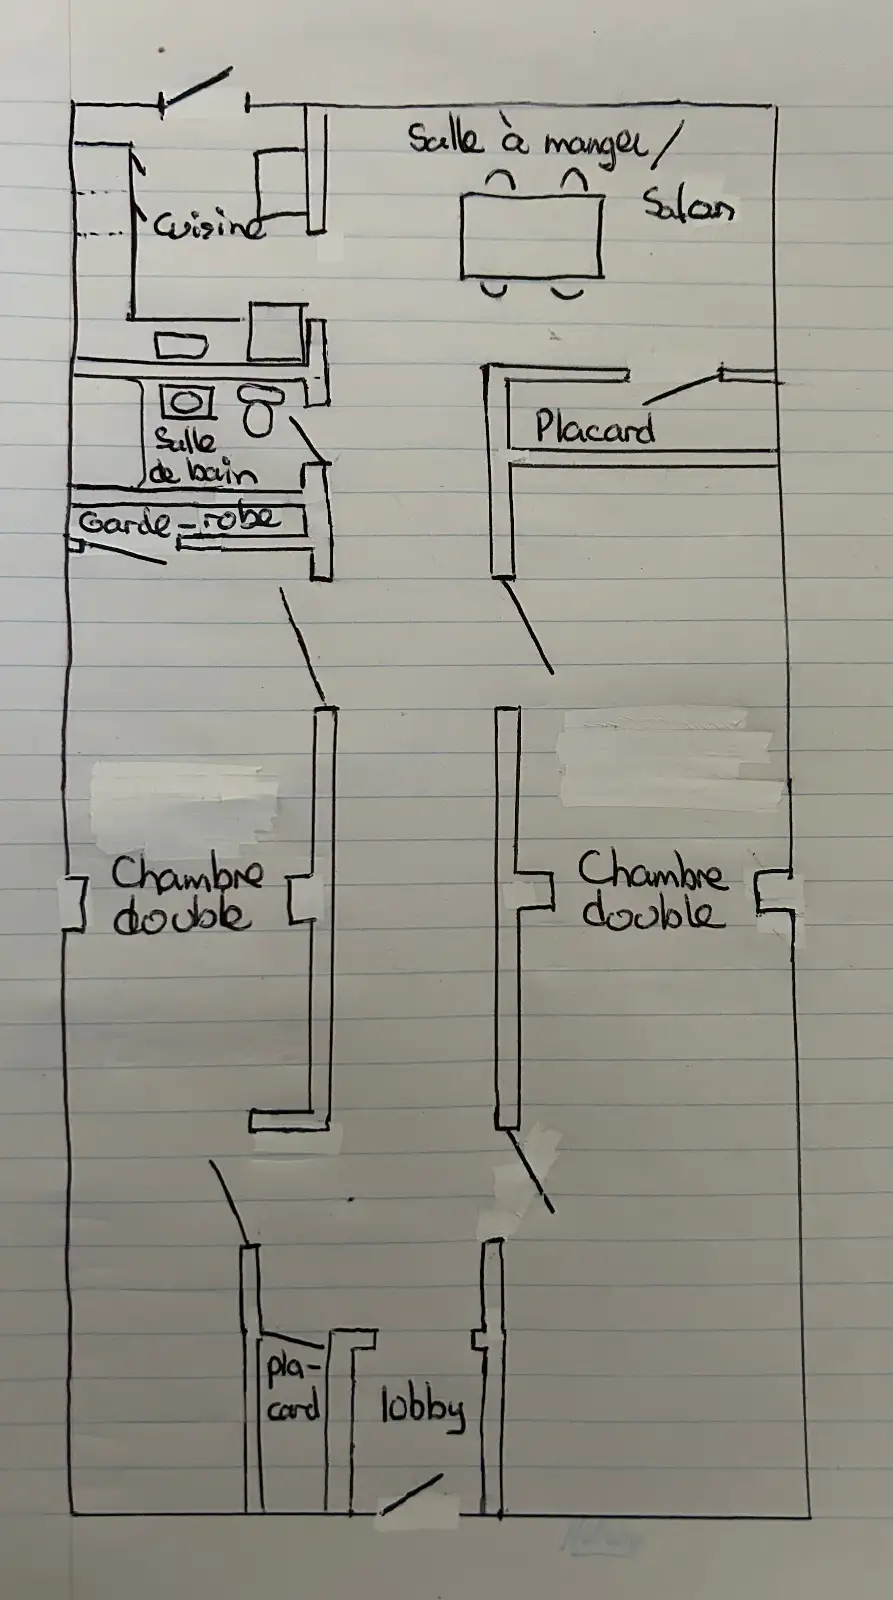 Salle à manger/
Salon
Cuisine
Placard
Salle
de bain
Garde-robe
Chambre
double
Chambre
double
pla-
card
lobby